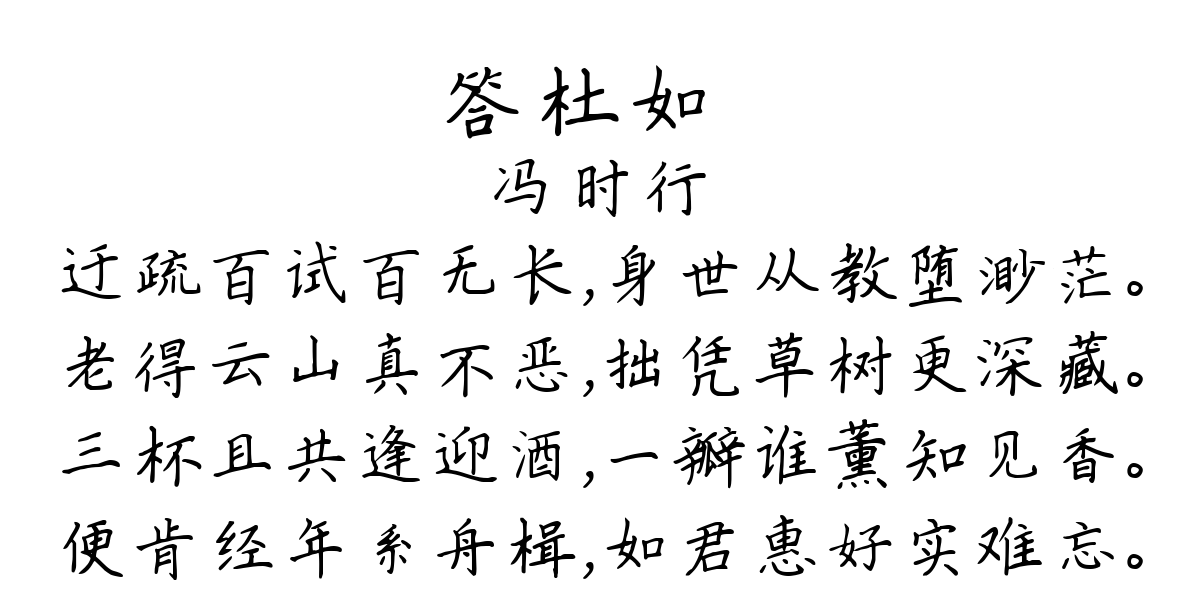 答杜如
冯时行
迂疏百试百无长,身世从教堕渺茫。
老得云山真不恶,拙凭草树更深藏。
三杯且共逢迎酒,一瓣谁薰知见香。
便肯经年系舟楫,如君惠好实难忘。